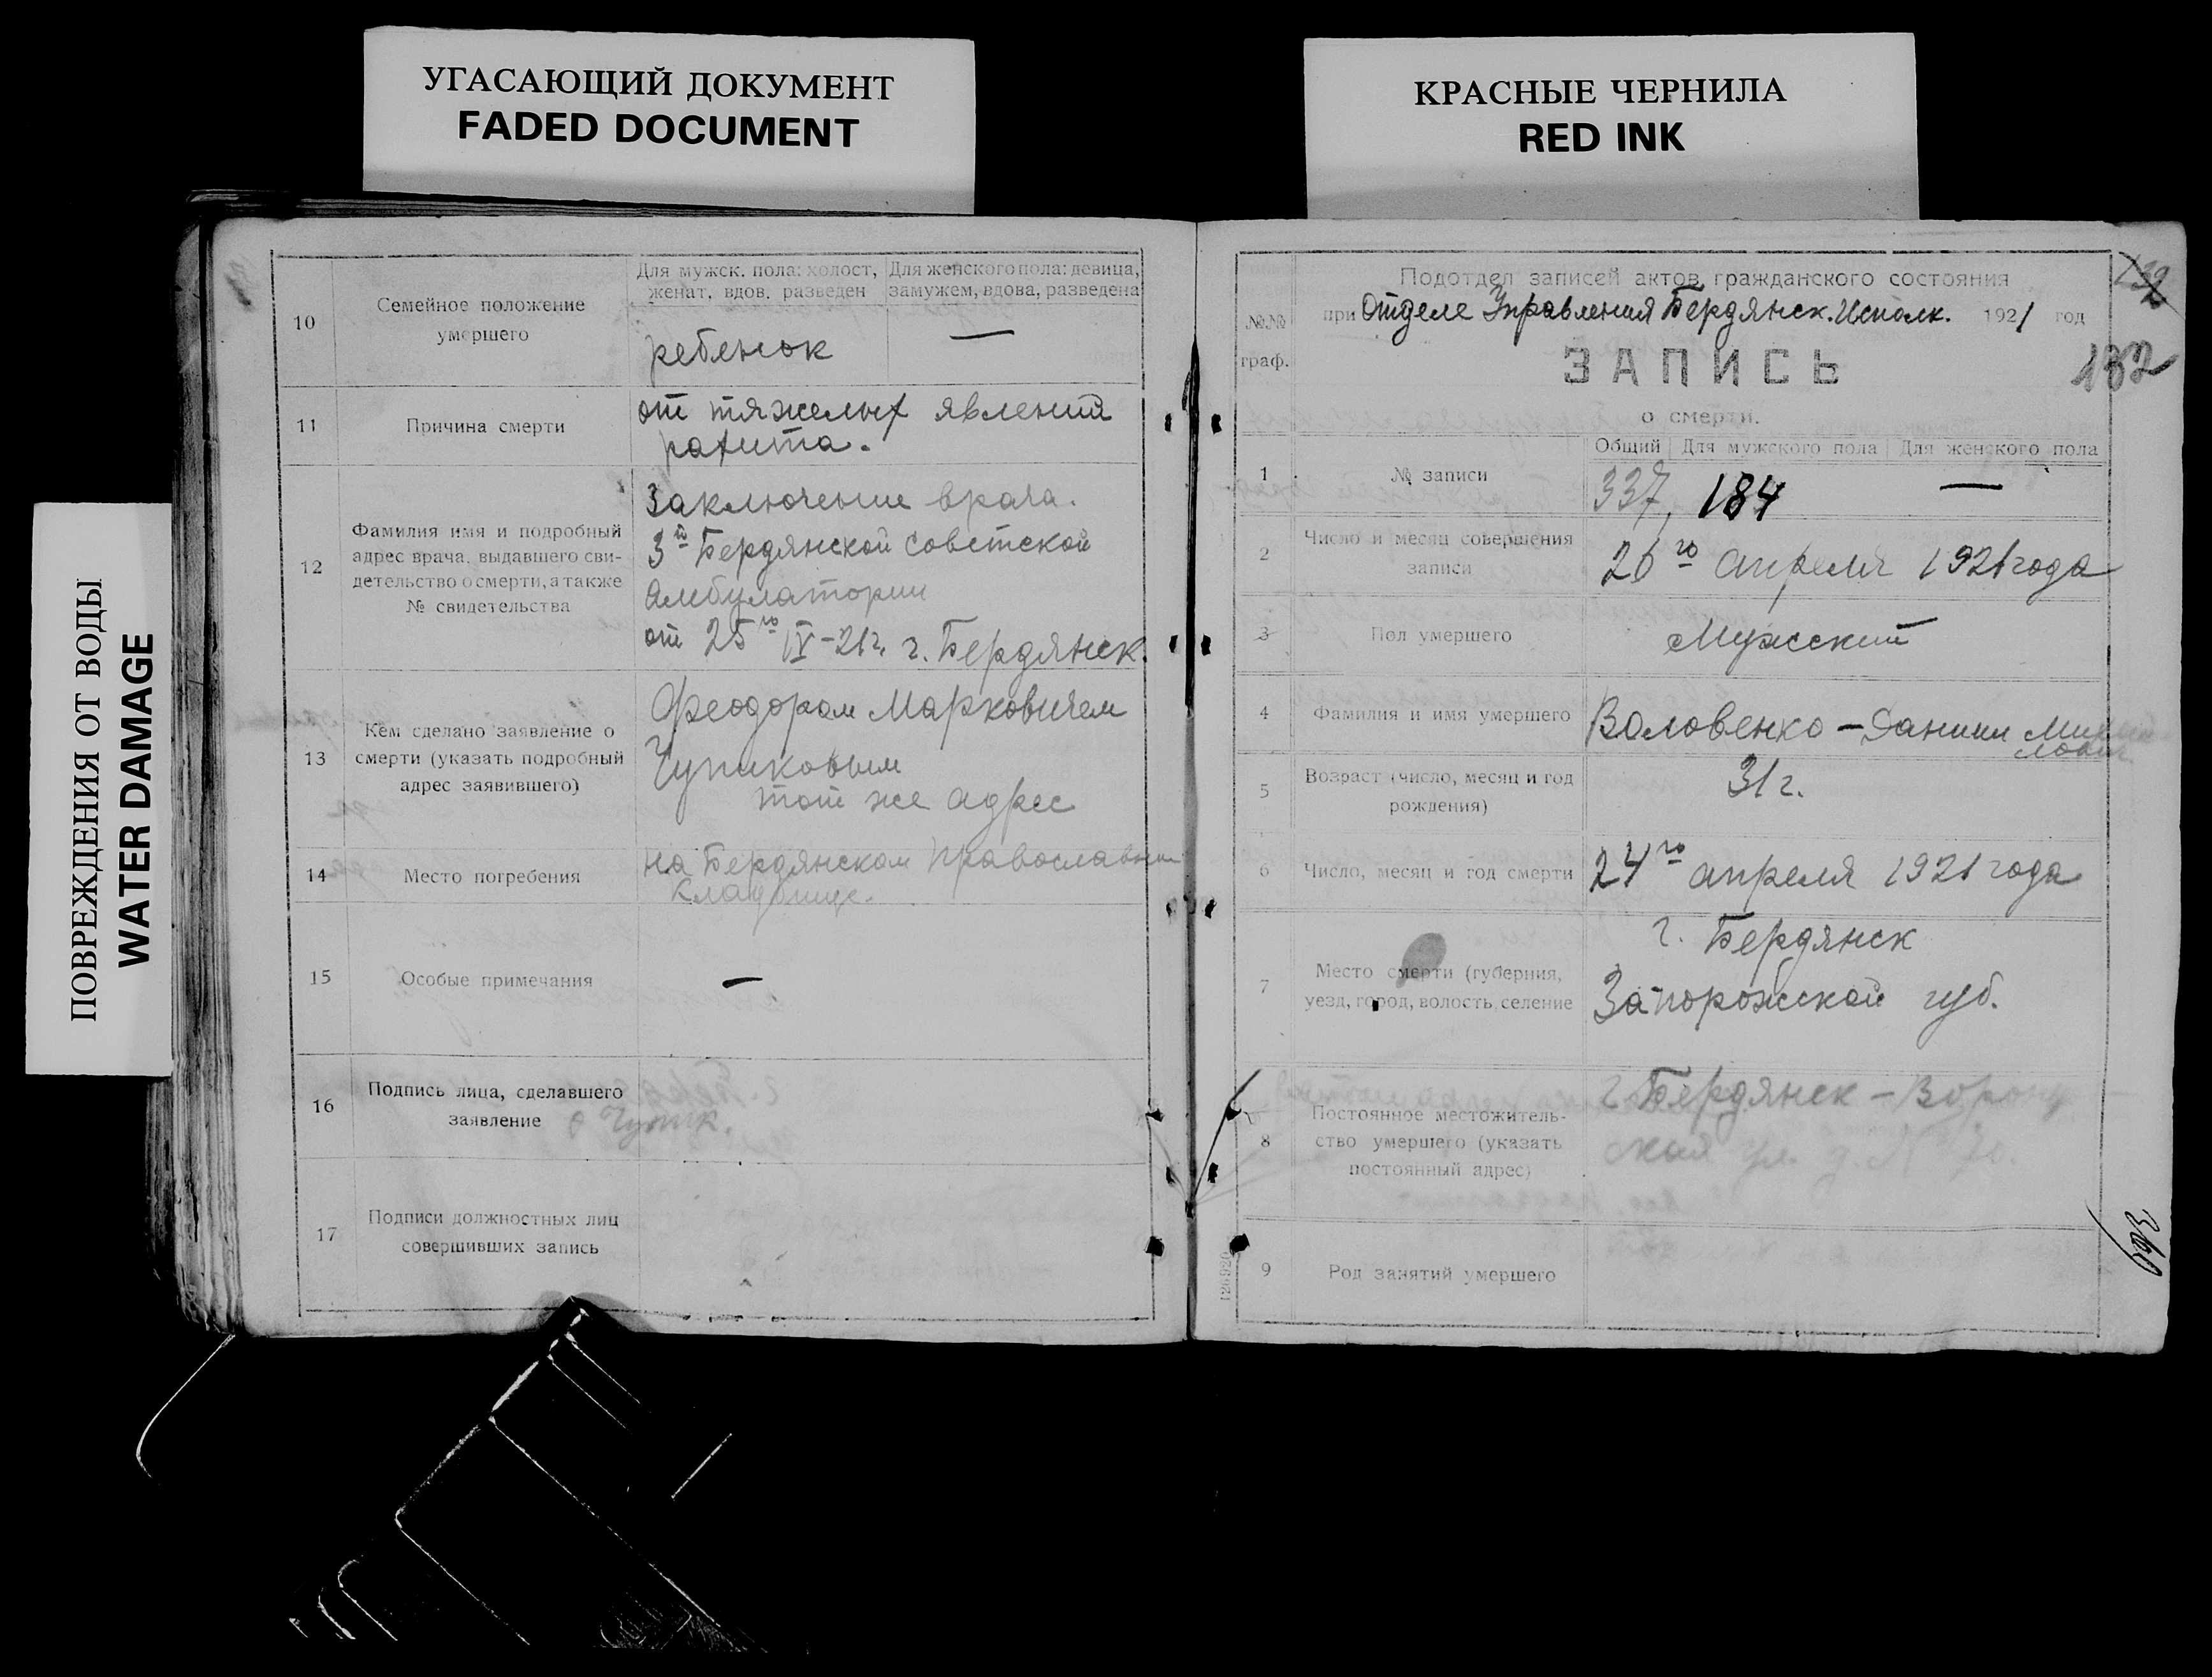 УГАСАЮЩИЙ ДОКУМЕНТ
FADED DOCUMENT
КРАСНЫЕ ЧЕРНИЛА
RED INK
ПОВРЕЖДЕНИЯ ОТ ВОДЫ
WATER DAMAGE
10
Семейное положение
умершего
Для мужск. пола: холост,
женат, вдов, разведен
Для женского пола: девица,
замужем, вдова, разведена
ребенок
—
11
Причина смерти
от тяжелых явлений
рахита.
12
Фамилия имя и подробный
адрес врача, выдавшего сви-
детельство о смерти, а также
№ свидетельства
Заключение врача.
3й Бердянской Советской
Амбулатории
от 25го IV-21г. г. Бердянск.
13
Кем сделано заявление о
смерти (указать подробный
адрес заявившего)
Феодором Марковичем
тот же адрес
14
Место погребения
на Бердянском Православном
кладбище.
15
Особые примечания
—
16
Подпись лица, сделавшего
заявление
17
Подписи должностных лиц
совершивших запись
Подотдел записей актов гражданского состояния
№№
граф.
при Отделе Управления Бердянск. Исполк. 1921 год
ЗАПИСЬ
о смерти.
132
1
№ записи
Общий
Для мужского пола
Для женского пола
337, 184 —
2
Число и месяц совершения
записи
26го апреля 1921 года
3
Пол умершего
Мужской
4
Фамилия и имя умершего
Воловенко — Даниил
5
Возраст (число, месяц и год
рождения)
3½ г.
6
Число, месяц и год смерти
24го апреля 1921 года
7
Место смерти (губерния,
уезд, город, волость, селение
г. Бердянск
Запорожской губ.
8
Постоянное местожитель-
ство умершего (указать
постоянный адрес)
г. Бердянск —
ская ул. д. №
9
Род занятий умершего
126920